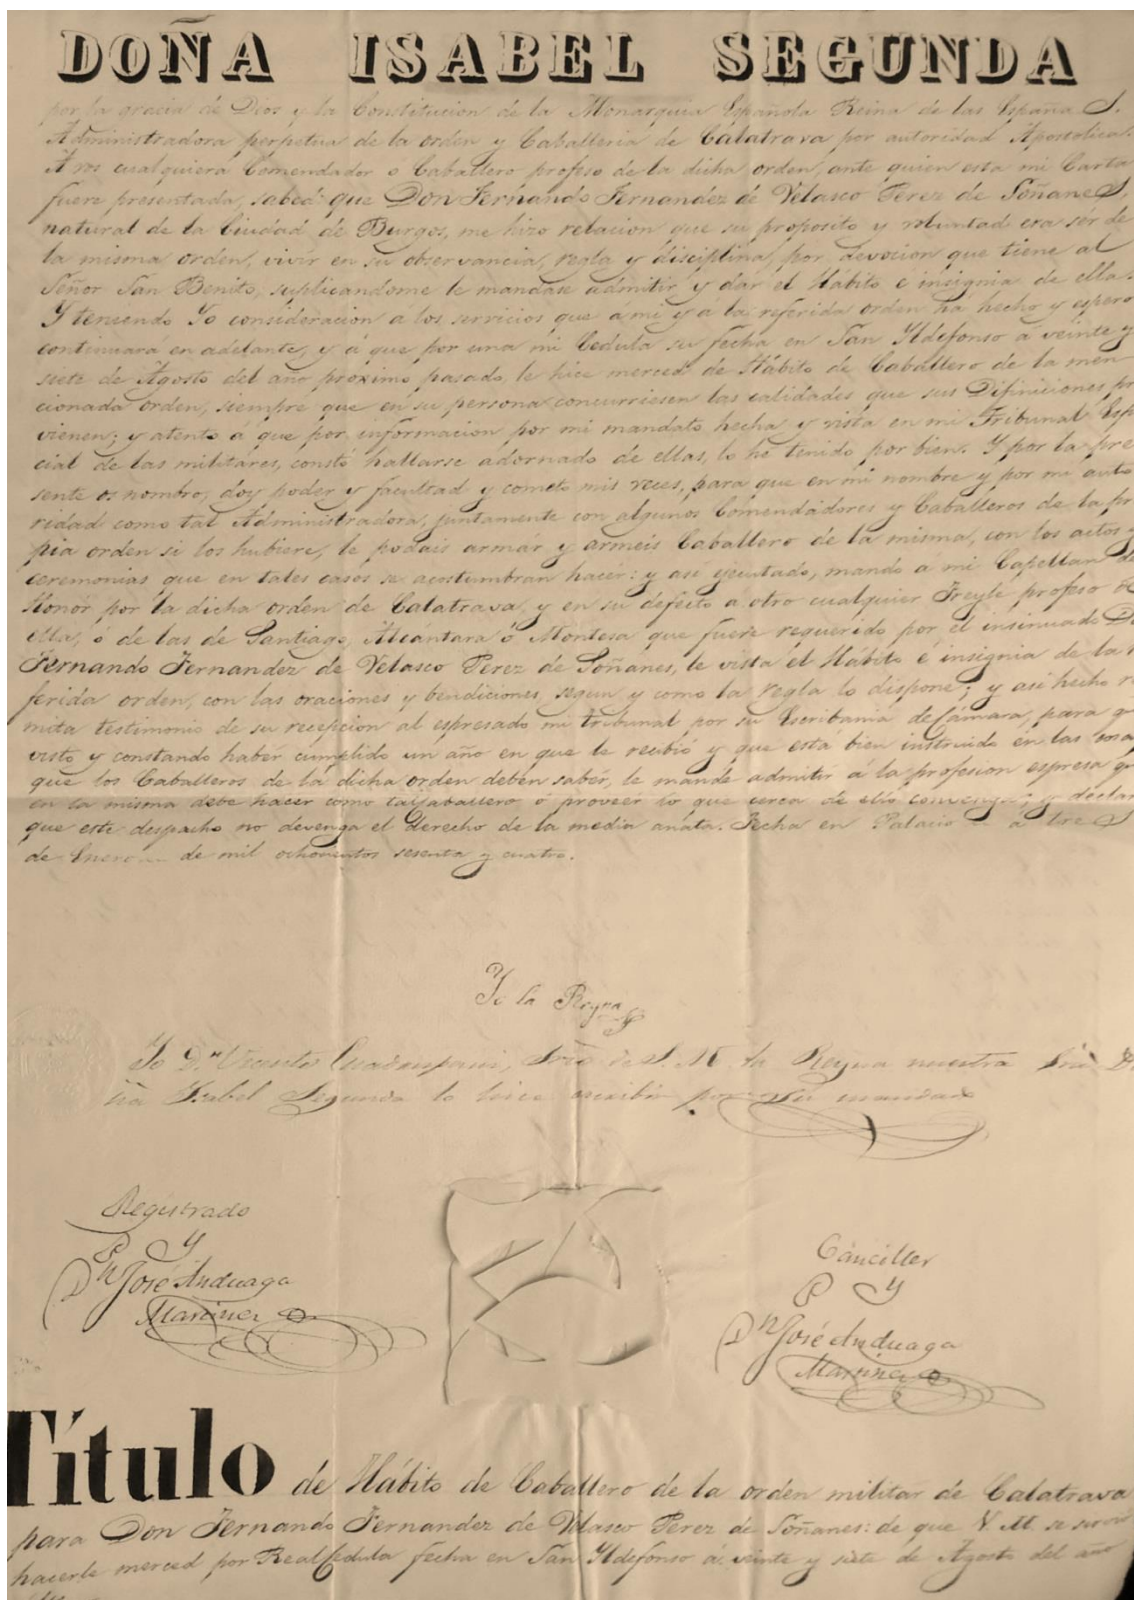 DOÑA ISABEL SEGUNDA
por la gracia de Dios y la Constitucion de la Monarquia Española Reina de las Españas.
Administradora perpetua de la orden y Caballeria de Calatrava por autoridad Apostolica.
A vos cualquiera Comendador ó Caballero profeso de la dicha orden, ante quien esta mi Carta
fuere presentada, sabed: que Don Fernando Fernandez de Velasco Perez de Soñanes,
natural de la Ciudad de Burgos, me hizo relacion que su proposito y voluntad era ser de
la misma orden, vivir en su observancia, regla y disciplina, por devocion que tiene al
Señor San Benito, suplicandome le mandase admitir y dar el Hábito é insignia de ella.
Y teniendo Yo consideracion a los servicios que a mi y á la referida orden ha hecho y espero
continuará en adelante, y á que por una mi Cedula su fecha en San Yldefonso a veinte y
siete de Agosto del año proximo pasado, le hice merced de Hábito de Caballero de la men
cionada orden, siempre que en su persona concurriesen las calidades que sus Difiniciones pr
vienen; y atento á que por informacion por mi mandato hecha y vista en mi Tribunal Espe
cial de las militares, constó hallarse adornado de ellas, lo he tenido por bien. Y por la pre
sente os nombro, doy poder y facultad y cometo mis veces, para que en mi nombre y por mi auto
ridad como tal Administradora, juntamente con algunos Comendadores y Caballeros de la pr
pia orden si los hubiere, le podais armár y armeis Caballero de la misma, con los actos y
ceremonias que en tales casos se acostumbran hacer: y asi ejecutado, mando á mi Capellan de
Honor por la dicha orden de Calatrava, y en su defecto a otro cualquier Freyle profeso de
ella, ó de las de Santiago, Alcantara ó Montesa que fuere requerido por el insinuado D
Fernando Fernandez de Velasco Perez de Soñanes, le vista el Hábito é insignia de la r
ferida orden, con las oraciones y bendiciones, segun y como la regla lo dispone; y asi hecho re
mita testimonio de su recepcion al espresado mi tribunal por su Escribania de Cámara, para qu
visto y constando haber cumplido un año en que le recibió y que está bien instruido en las cosas
que los Caballeros de la dicha orden deben saber, le mande admitir á la profesion espresa qu
en la misma debe hacer como tal Caballero ó proveer lo que cerca de ello convenga; y declar
que este despacho no devenga el derecho de la media anata. Fecha en Palacio á tres
de Enero de mil ochocientos sesenta y cuatro.
Yo la Reyna
Yo Dn Vicente Srio de S. M. la Reyna nuestra Sra D
ña Isabel Segunda lo hice escribir por su mandado
Registrado
Dn José Anduaga
Martinez
Cánciller
Dn José Anduaga
Martinez
Título de Hábito de Caballero de la orden militar de Calatrava
para Don Fernando Fernandez de Velasco Perez de Soñanes: de que V. M. se sirvió
hacerle merced por Real Cedula fecha en San Yldefonso á veinte y siete de Agosto del año